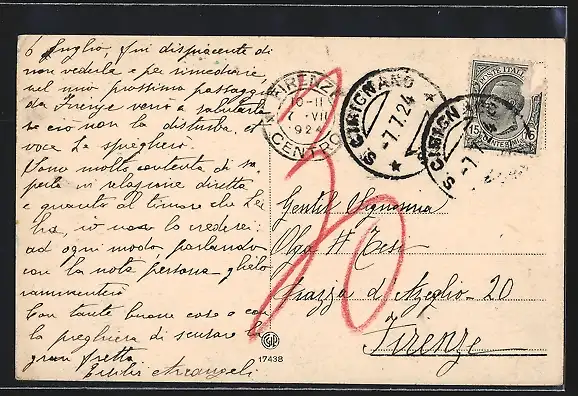 6 luglio, fui dispiacente di
non vederla e per rimediare,
nel mio prossimo passaggio
da Firenze verrò a salutarla
se ciò non la disturba, a
voce Le spiegherò.
Sono molto contenta di sa
perla in relazione diretta
e quanto al timore che Lei
ha, io non lo crederei:
ad ogni modo parlando
con la nota persona glielo
rammenterò
Con tante buone cose e con
la preghiera di scusare la
gran fretta
Arcangeli
FIRENZE
10-11
7 VII
1924
CENTRO
S. CIRIGNANO
-7.7.24
S. CIRIGNANO
-7.7
POSTE ITALIANE
15 CENTESIMI 15
20
Gentil Signorina
Olga H Tesi
Piazza d'Azeglio - 20
Firenze
17438